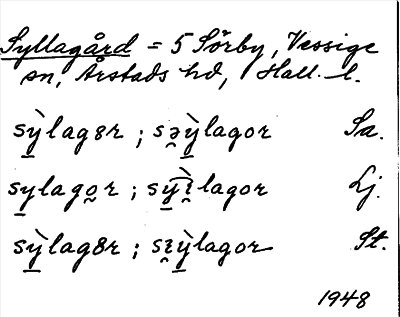 Syllagård = 5 Sörby, Vessige
sn, Årstads hd, Hall. l.
sỳ̲lag8r ; sə̯ỳ̲lagor Sa.
sy̲lago̯r ; sỳ̲ɪ̯̀lagor Lj.
sỳ̲lag8r ; sɪ̯ỳ̲lagor St.
1948